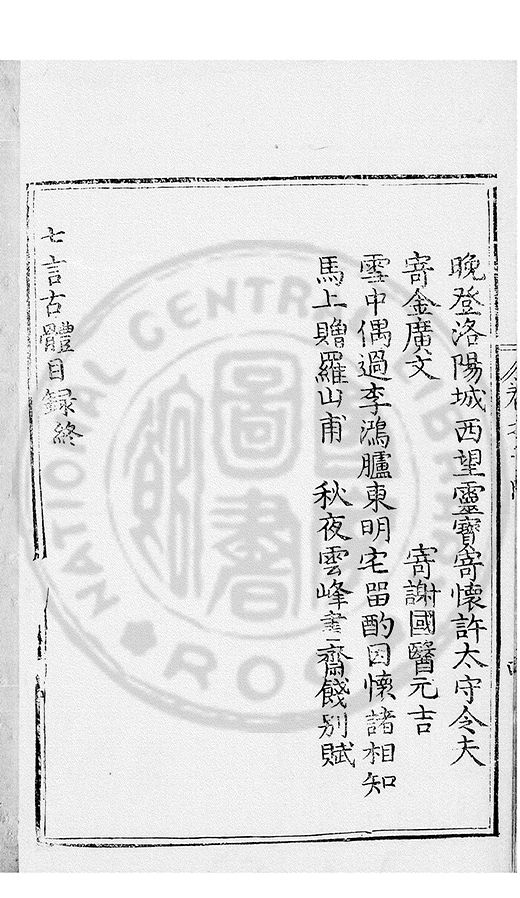 晚登洛陽城西望靈寶寄懷許太守令夫
寄金廣文 寄謝國醫元吉
雪中偶過李鴻臚東明宅留酌因懷諸相知
馬上贈羅山甫 秋夜雲峰書齋餞別賦
七言古體目録終
NATIONAL CENTRAL LIBRARY
R.O.C.